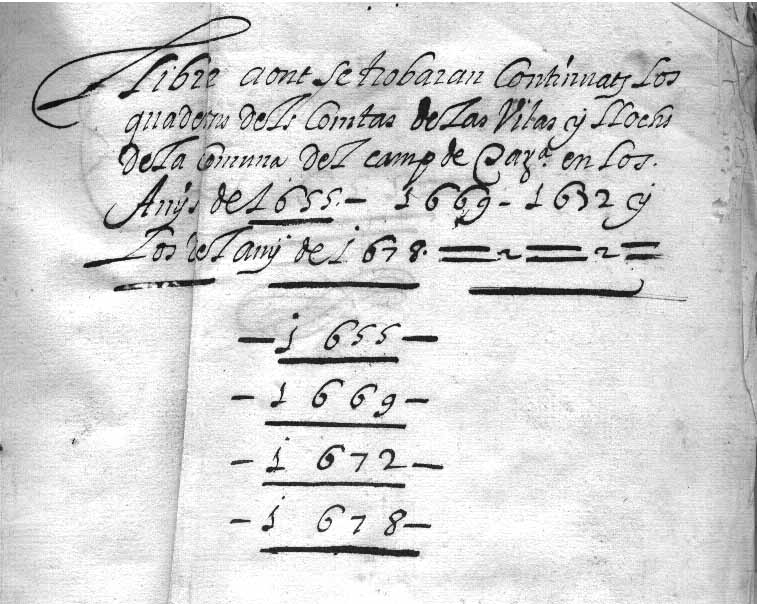 Llibre aont se trobaran Continuats Los
quaderns dels Comtas de Las Vilas y Llochs
de La Comuna del camp de en Los.
Anýs de 1655.- 1669 - 1632 y
Los del any de 1678. = ~ = ~ =
- 1655 -
- 1669 -
- 1672 -
- 1678 -